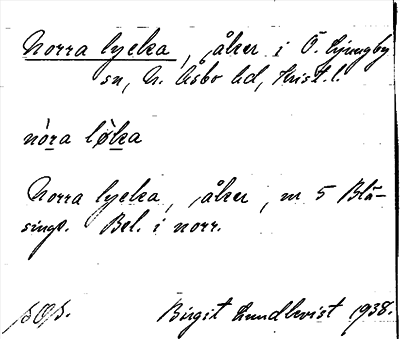 Norra lycka, åker i Ö. Ljungby
sn, N. Åsbo hd, Krist. l.
nòra lø̀ka
Norra lycka, åker, nr 5 Blä-
singe. Bel. i norr.
Birgit Lundkvist 1938.